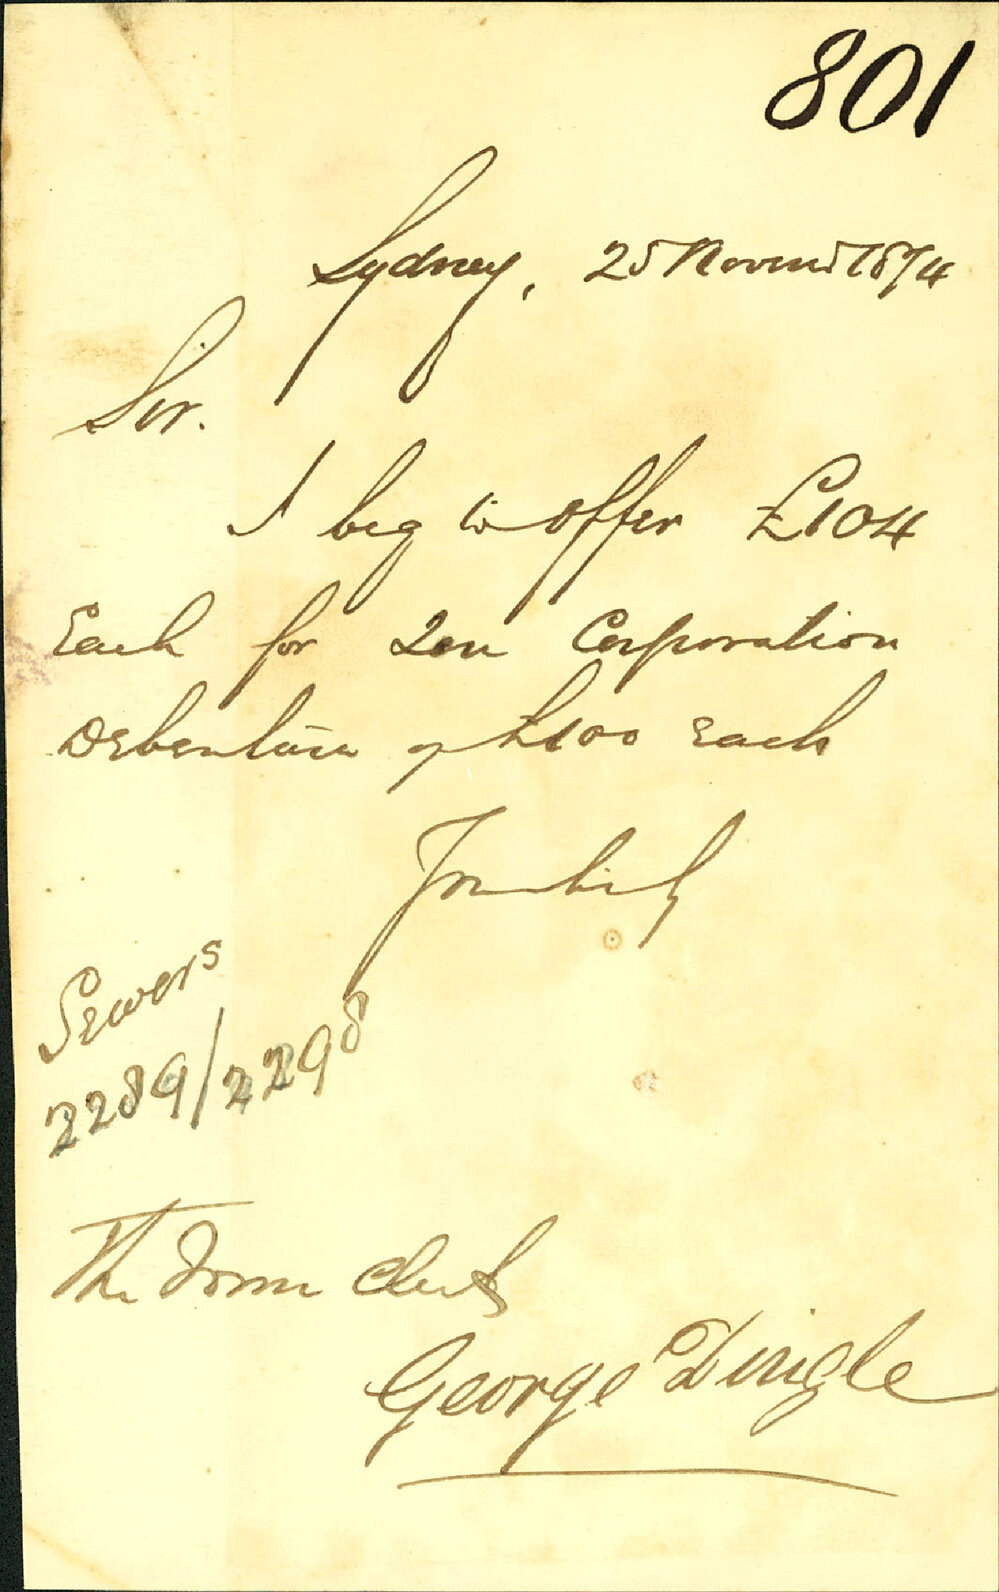 801
Sydney, 25 Novem 1874
Sir.
I beg to offer £104
Each for Ten Corporation
Debentures of £100 Each
Faithfully
Sewers
2289/2298
The Town Clerk
George Dingle